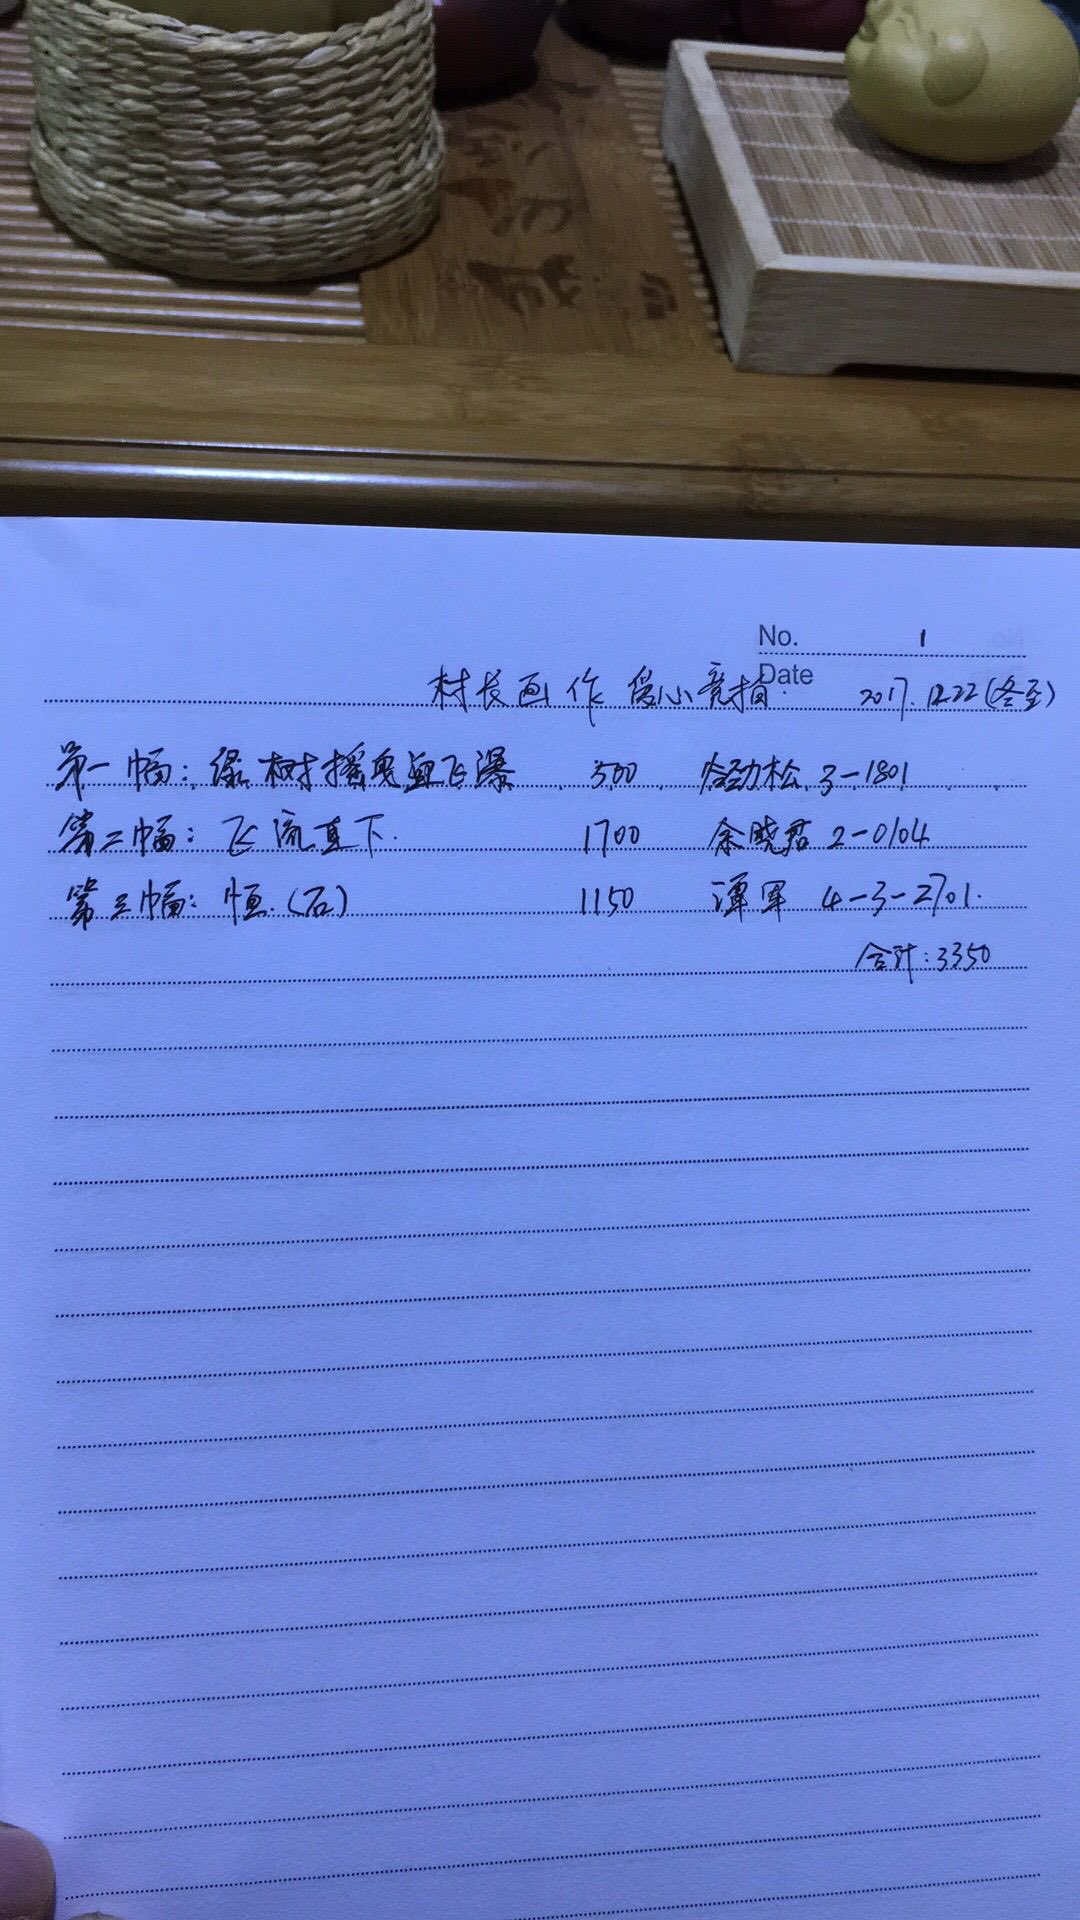 No. 1
Date 2017.12.22(冬至)
村长画作 爱心竞拍
第一幅: 绿树摇曳映飞瀑 500 冷劲松 3-1801
第二幅: 飞流直下. 1700 余晓君 2-0104
第三幅: 恒.(石) 1150 谭军 4-3-2701.
合计:3350